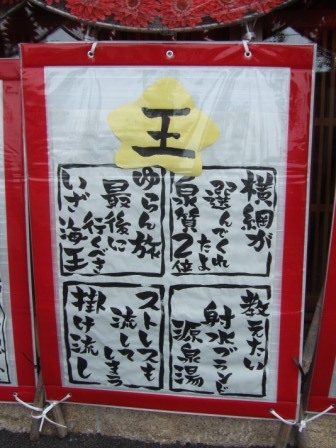 王
横綱が
選んでくれ
たよ
泉質2位
ゆらん旅
最後に
行くべき
いざ海王
教えたい
射水ブランド
源泉湯
ストレスも
流してしまう
掛け流し